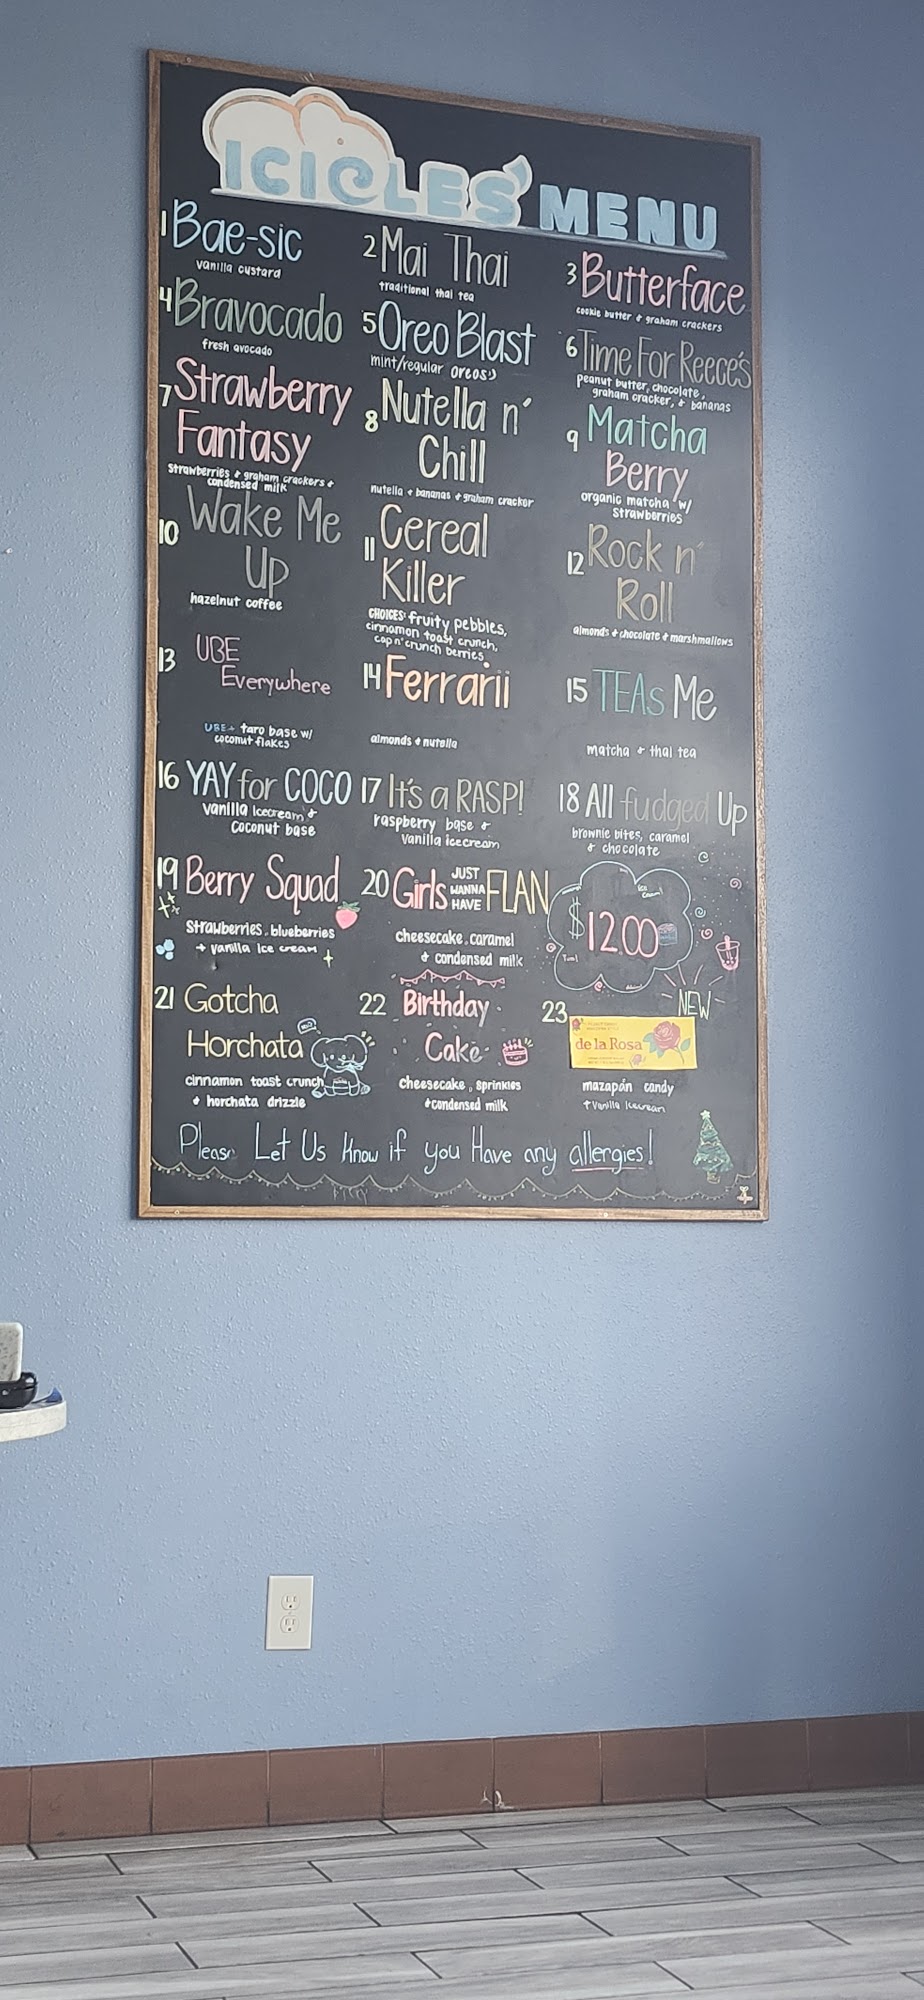 ICICLES' MENU
1 Bae-sic
vanilla custard
2 Mai Thai
traditional thai tea
3 Butterface
cookie butter & graham crackers
4 Bravocado
fresh avocado
5 Oreo Blast
mint/regular oreos:)
6 Time For Reece's
peanut butter, chocolate,
graham cracker, & bananas
7 Strawberry
Fantasy
strawberries & graham crackers &
condensed milk
8 Nutella n'
Chill
nutella + bananas + graham cracker
9 Matcha
Berry
organic matcha w/
strawberries
10 Wake Me
Up
hazelnut coffee
11 Cereal
Killer
CHOICES: fruity pebbles,
cinnamon toast crunch,
cap n' crunch berries
12 Rock n'
Roll
almonds + chocolate + marshmallows
13 UBE
Everywhere
UBE + taro base w/
coconut flakes
14 Ferrarii
almonds + nutella
15 TEAs Me
matcha & thai tea
16 YAY for COCO
vanilla icecream &
coconut base
17 It's a RASP!
raspberry base &
vanilla icecream
18 All fudged Up
brownie bites, caramel
& chocolate
19 Berry Squad
strawberries, blueberries
+ vanilla ice cream
20 Girls JUST WANNA HAVE FLAN
cheesecake, caramel
& condensed milk
$12.00
21 Gotcha
Horchata
cinnamon toast crunch
+ horchata drizzle
22 Birthday
Cake
cheesecake, sprinkles
+condensed milk
NEW
23
de la Rosa
mazapán candy
+ vanilla icecream
Please Let Us know if you Have any allergies!